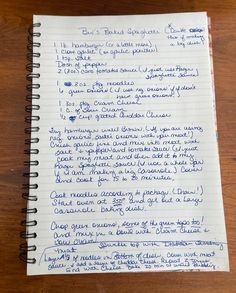 Bev's Baked Spaghetti
* Double if making a big dish
1 lb hamburger (or a little more)
1 clove garlic (or garlic powder)
1 tsp salt
Dash of pepper
2 (8oz) cans tomato sauce (I just use Ragu Spaghetti Sauce)
8oz pkg noodles
6 green onions (I use reg onions if I don't have green onions)
1 8oz pkg Cream Cheese
1 c. Sour Cream
1/2 cup grated Cheddar Cheese
Fry hamburger until brown. (If you are using reg. onions, sauté onions with your meat.)
Crush garlic and mix with meat with salt & pepper and tomato sauce (I just cook my meat and then add it to my Ragu Spaghetti Sauce)
I am making a big casserole. Cover and cook for 15 to 20 minutes.
Cook noodles according to package. (Drain!)
Start oven at 350° and get out a large Casserole baking dish.
Chop green onions, some of the green tops too!
and mix in a bowl with Cream Cheese & Sour Cream.
Layering noodles in bottom of dish. Cover with meat
and with Cheese. Bake 20 min or until bubbly.